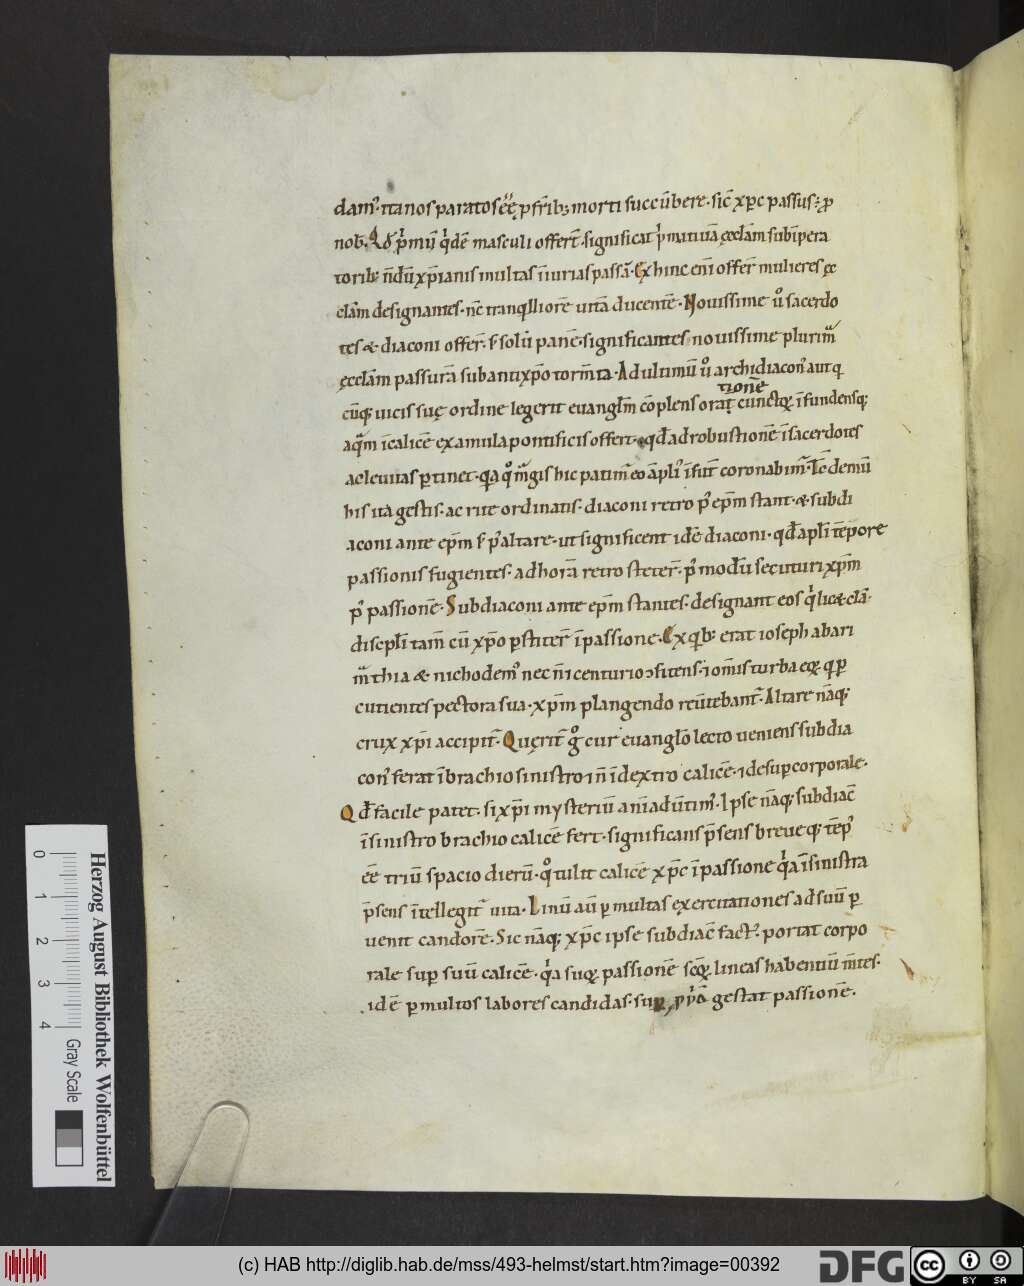 damꝰ· ita nos paratos eę̄ p frib; morti succūbere· sic̄ xp̄c passus ÷ p
nob̄· Qđ pͥmū qͥdē masculi offert̄· significat pͥmitiuā ęcclām sub īpera
torib; nōdū xp̄ianis multas īiurias passā· Exhinc enī offer̄ mulieres ęc
clām designantes· nc̄ tranq̇lliorē uitā ducentē· Nouissime ůͦ sacerdo
tes & diaconi offer̄· s; solū panē· significantes nouissime plurimā
ęcclām passurā sub antixp̄o torm̄ta· Ad ultimū uͦ archidiaconꝰ aut qͥ
tionē
cūq; uicis suę ordine legerit euangl̄m cōplens orat̄ cunctoꝝ īfundensq;
aquam ī calicē ex amula pontificis offert· qđ ad robustionē ī sacerdotes
ac leuitas ꝑtinet· qͥa qͦ magis hic patim̄ eo āplꝰ ī fut̄ coronabim̄· Tc̄ demū
his ita gestis· ac rite ordinatis· diaconi retro pꝰ ep̄m stant· & subdi
aconi ante ep̄m s; pꝰ altare· ut significent idē diaconi· qđ apl̄i tēpore
passionis fugientes· ad horā retro steter̄· pꝰ modū secuturi xp̄m
pꝰ passionē· Subdiaconi ante ep̄m stantes· designant eos qͥ lic& clā·
discipl̄i tam̄ cū xp̄o ꝑstiter̄ ī passione· Ex qͥb; erat ioseph ab ari
mathia & nichodemꝰ nec n̄ i centurio ↄfitens· ⁊ om̄is turba eoꝝ qͥ ꝑ
cutientes pectora sua· xp̄m plangendo reūtebant̄· Altare nāq;
crux xp̄i accipit̄· Quęrit̄ gͦ cur euangl̄o lecto ueniens subdia
conꝰ ferat ī brachio sinistro ⁊ n̄ ī dextro calicē· ⁊ desuꝑ corporale·
Qđ facile patet· si xp̄i mysteriū aniaduīmꝰ· Ipse nāq; subdiac̄
ī sinistro brachio calicē fert· significans p̄sens breueq; tēpꝰ
eē̄ triū spacio dierū· qͦ tulit calicē xp̄c ī passione qͥa ī sinistra
p̄sens ītellegit̄ uita· Linū aū ꝑ multas exercitationes ad suū ꝑ
uenit candorē· Sic nāq; xp̄c ipse subdiac̄ factꝰ· portat corpo
rale suꝑ suū calicē· qͥa suoꝝ passionē sc̄oꝝ· lineas habentiū m̄tes·
idē ꝑ multos labores candidas· suꝑ gestat passionē·
Herzog August Bibliothek Wolfenbüttel
0 1 2 3 4
Gray Scale
(c) HAB http://diglib.hab.de/mss/493-helmst/start.htm?image=00392
DFG
cc BY SA